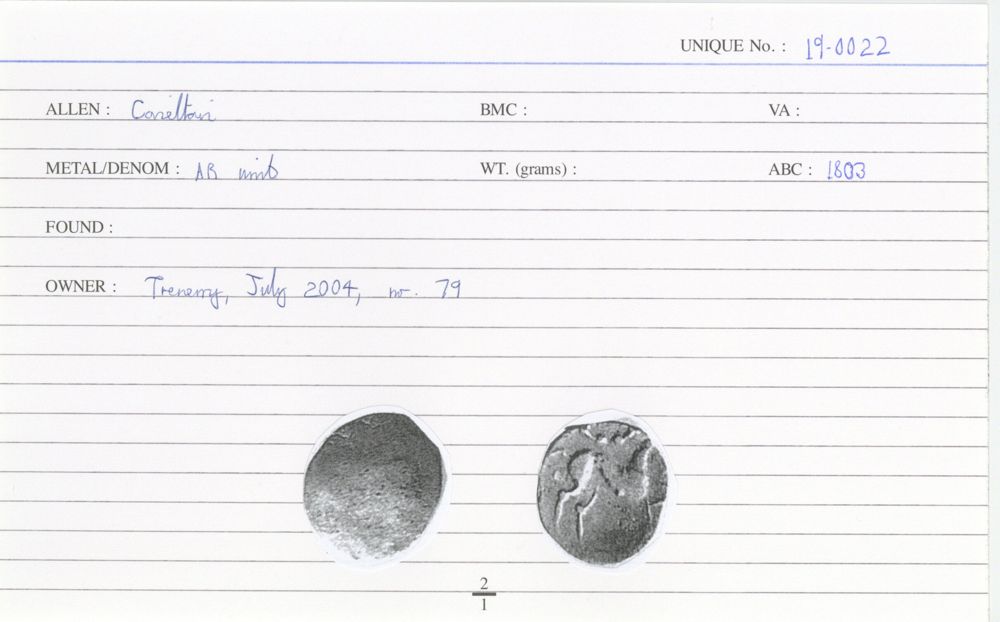 UNIQUE No. : 19-0022
ALLEN : Corieltavi BMC : VA :
METAL/DENOM : AR unit WT. (grams) : ABC : 1803
FOUND :
OWNER : Trenerry, July 2004, no. 79
2
1